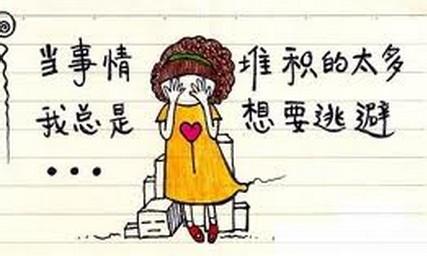 当事情堆积的太多
我总是想要逃避
•••